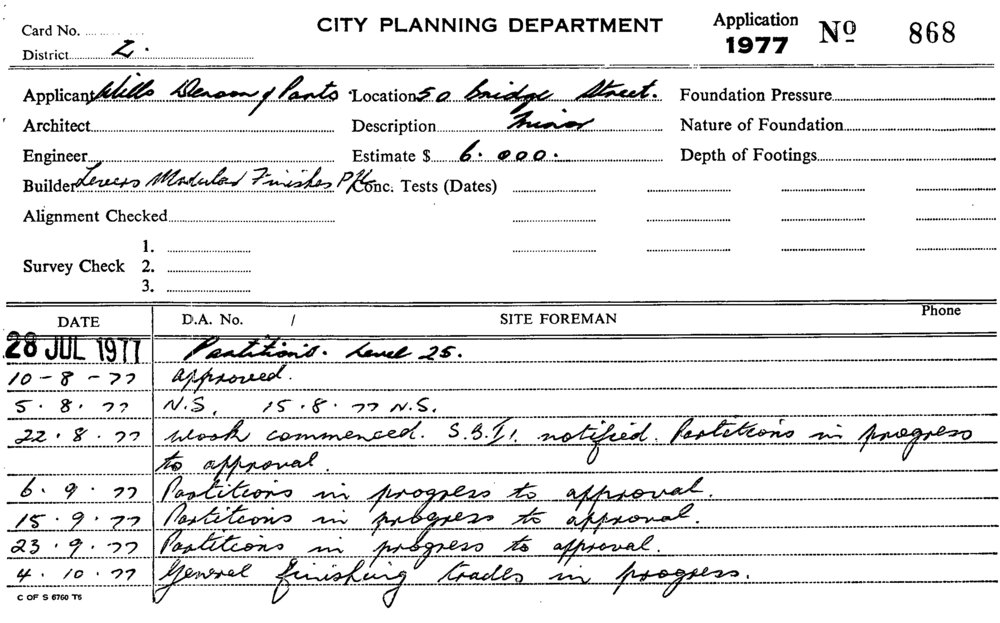 Card No.
CITY PLANNING DEPARTMENT
Application 1977 Nº 868
District 2.
Applicant Wills Denoon & Parts Location 50 Bridge Street. Foundation Pressure
Architect Description Minor Nature of Foundation
Engineer Estimate $ 6.000. Depth of Footings
Builder Levers Modular Finishes P/L Conc. Tests (Dates)
Alignment Checked
Survey Check 1.
2.
3.
DATE D.A. No. / SITE FOREMAN Phone
28 JUL 1977 Partitions. Level 25.
10-8-77 approved.
5.8.77 N.S. 15.8.77 N.S.
22.8.77 Work commenced. S.B.I. notified. Partitions in progress
to approval.
6.9.77 Partitions in progress to approval.
15.9.77 Partitions in progress to approval.
23.9.77 Partitions in progress to approval.
4.10.77 General finishing trades in progress.
C OF S 6760 T6